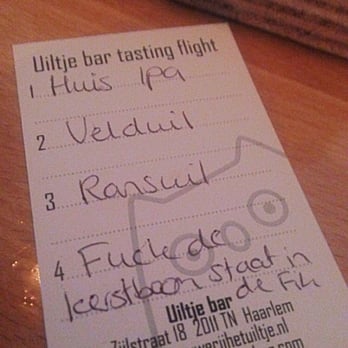 Uiltje bar tasting flight
1 Huis Ipa
2 Velduil
3 Ransuil
4 Fuck de
kerstboom staat in
de Fik
Uiltje bar
Zijlstraat 18 2011 TN Haarlem